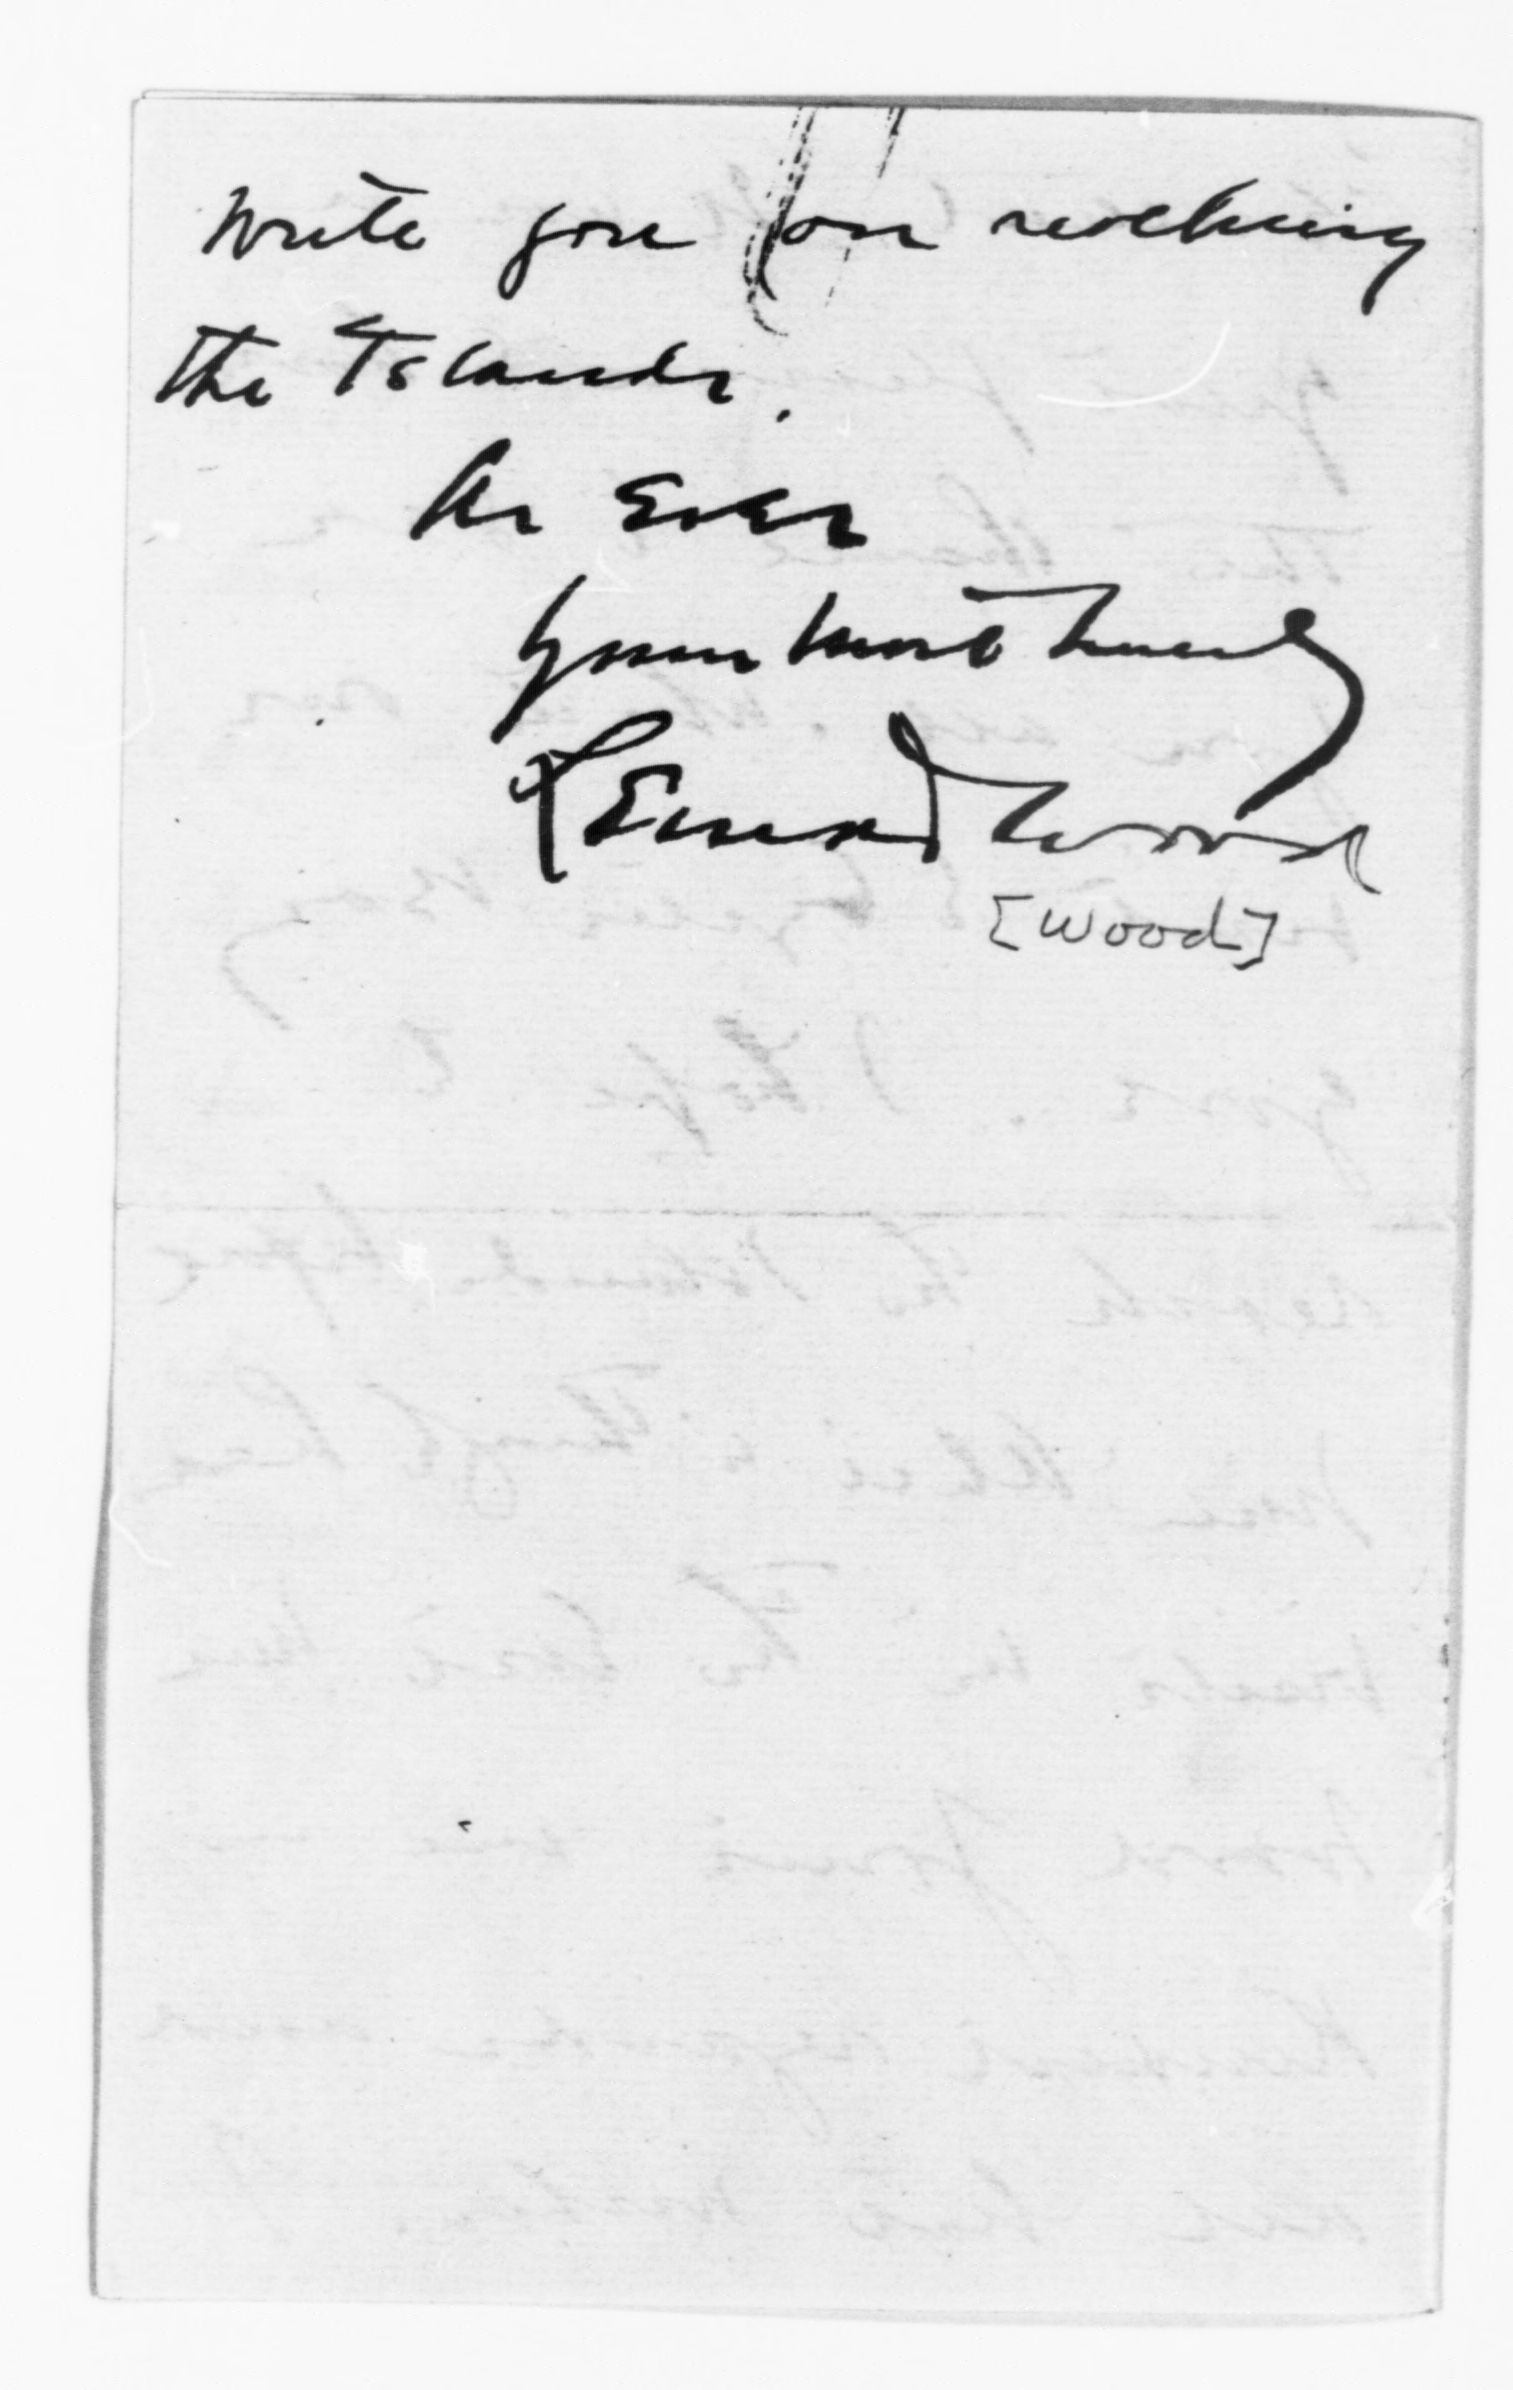 write you on reaching
the Islands.
As Ever
Yours most truly
Leonard Wood
[Wood]